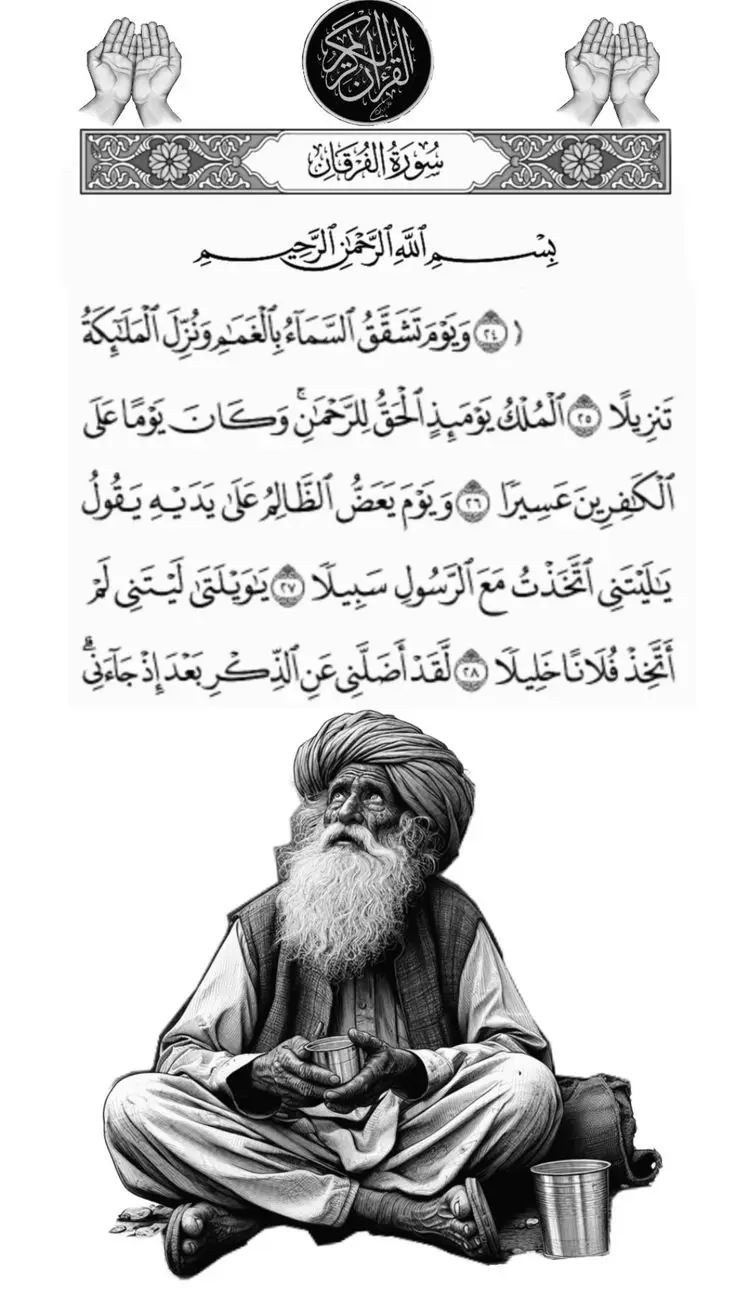 القرآن الكريم
سُورَةُ الفُرْقَانِ
بِسْمِ ٱللَّهِ ٱلرَّحْمَٰنِ ٱلرَّحِيمِ
( ٢٤ وَيَوْمَ تَشَقَّقُ ٱلسَّمَآءُ بِٱلْغَمَٰمِ وَنُزِّلَ ٱلْمَلَٰٓئِكَةُ
تَنزِيلًا ٢٥ ٱلْمُلْكُ يَوْمَئِذٍ ٱلْحَقُّ لِلرَّحْمَٰنِ ۚ وَكَانَ يَوْمًا عَلَى
ٱلْكَٰفِرِينَ عَسِيرًا ٢٦ وَيَوْمَ يَعَضُّ ٱلظَّالِمُ عَلَىٰ يَدَيْهِ يَقُولُ
يَٰلَيْتَنِى ٱتَّخَذْتُ مَعَ ٱلرَّسُولِ سَبِيلًا ٢٧ يَٰوَيْلَتَىٰ لَيْتَنِى لَمْ
أَتَّخِذْ فُلَانًا خَلِيلًا ٢٨ لَّقَدْ أَضَلَّنِى عَنِ ٱلذِّكْرِ بَعْدَ إِذْ جَآءَنِى ۗ